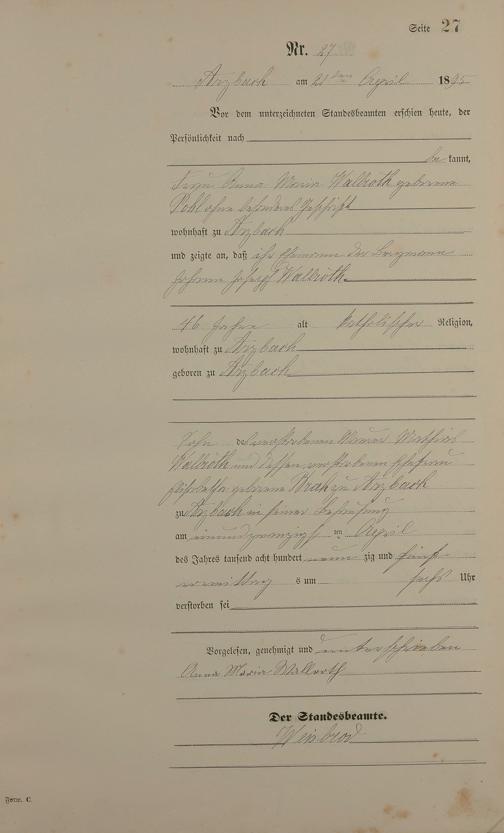 Seite 27
Nr. 27
Arzbach am 21ten April 1895
Vor dem unterzeichneten Standesbeamten erschien heute, der
Persönlichkeit nach
bekannt,
Frau Anna Maria Wallroth geborene
Pohl ohne besonderes Geschäft
wohnhaft zu Arzbach
und zeigte an, daß ihr Ehemann der Bergmann
Johann Joseph Wallroth
46 Jahre alt katholischer Religion,
wohnhaft zu Arzbach
geboren zu Arzbach
Sohn des verstorbenen Mathias
Wallroth und dessen verstorbenen Ehefrau
Elisabetha geborene zu Arzbach
zu Arzbach in seiner Behausung
am einundzwanzigsten April
des Jahres tausend acht hundert neunzig und fünf
vormittags um sechs Uhr
verstorben sei
Vorgelesen, genehmigt und unterschrieben
Anna Maria Wallroth
Der Standesbeamte.
Weinbrod
Form. C.